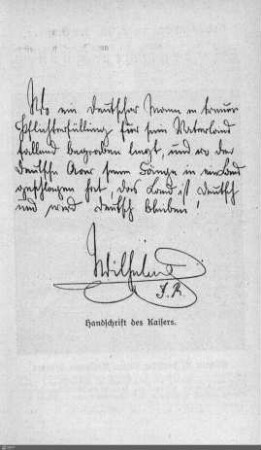 Wo ein deutscher Mann in treuer
Pflichterfüllung für sein Vaterland
fallend begraben liegt, und wo der
deutsche Aar seine Fänge in ein Land
geschlagen hat, das Land ist deutsch
und wird deutsch bleiben!
Wilhelm
I.R.
Handschrift des Kaisers.